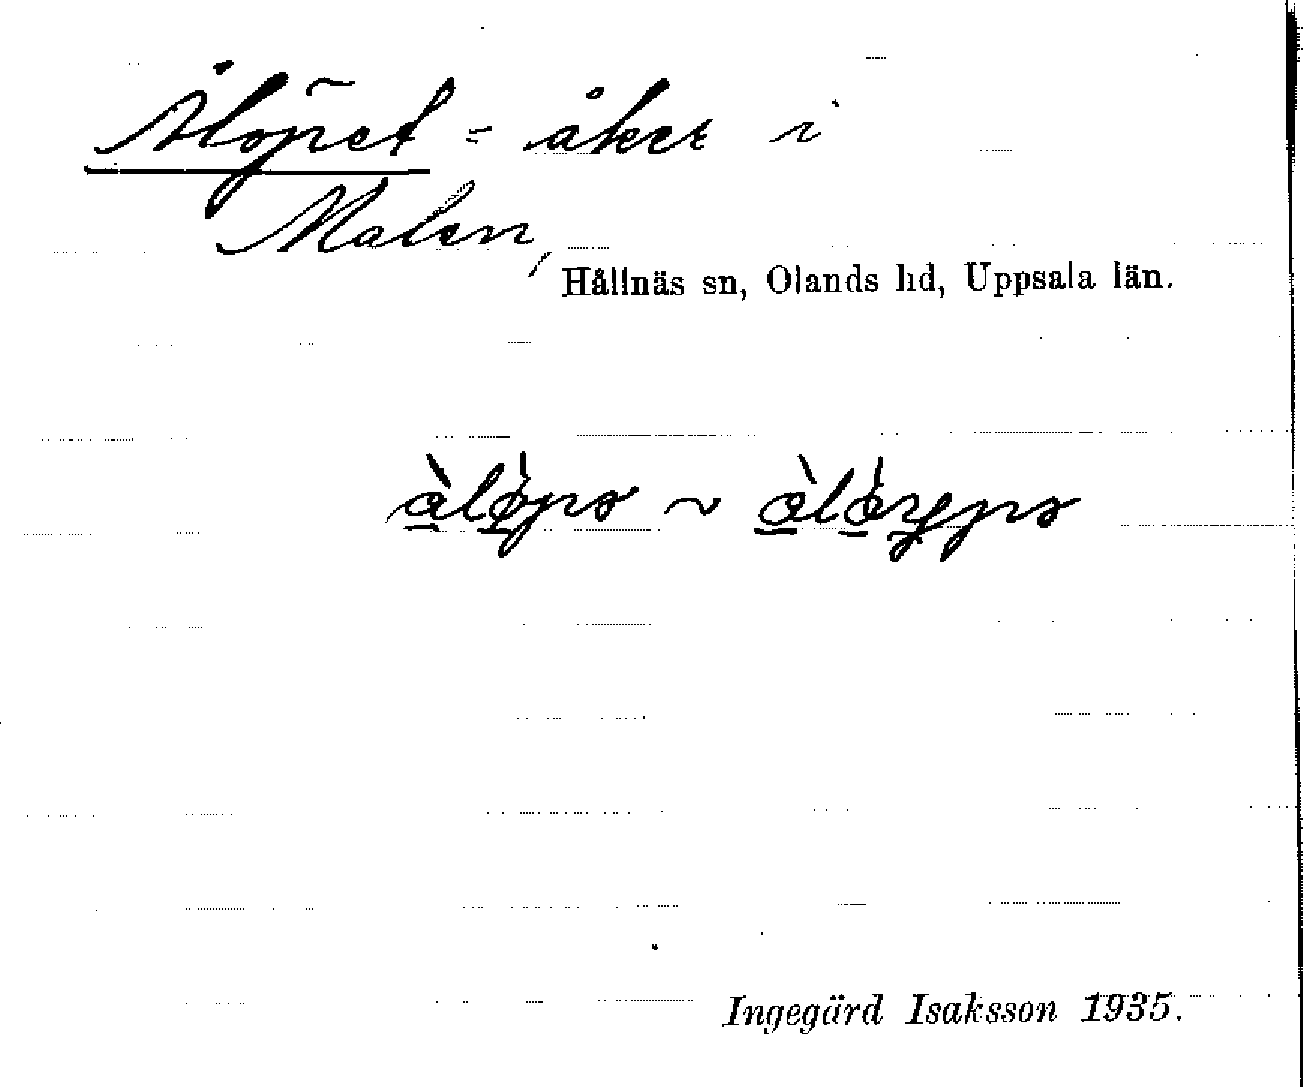 Ålöpet = åker i
Malen,
Hållnäs sn, Olands hd, Uppsala län.
Ingegärd Isaksson 1935.